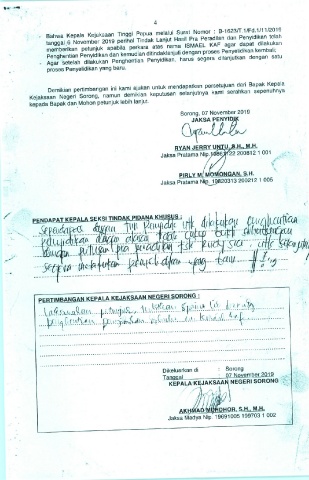 4
Bahwa Kepala Kejaksaan Tinggi Papua melalui Surat Nomor : B-1623/T.1/Fd.1/11/2019
tanggal 6 November 2019 perihal Tindak Lanjut Hasil Pra Peradilan dan Penyidikan telah
memberikan petunjuk apabila perkara atas nama ISMAEL KAF agar dapat dilakukan
Penghentian Penyidikan dan kemudian ditindaklanjuti dengan proses Penyelidikan dan Penyidikan.
Agar setelah dilakukan Penghentian Penyidikan, harus segera dilanjutkan dengan satu
proses Penyidikan yang baru.
Demikian pertimbangan ini kami ajukan untuk mendapatkan persetujuan dari Bapak Kepala
Kejaksaan Negeri Sorong, namun demikian keputusan selanjutnya kami serahkan sepenuhnya
kepada Bapak dan Mohon petunjuk lebih lanjut.
Sorong, 07 November 2019
JAKSA PENYIDIK
RYAN JERRY UNTU, S.H., M.H.
Jaksa Pratama Nip. 200812 1 001
PIRLY M. MOMONGAN, S.H.
Jaksa Pratama Nip. 19820313 200212 1 005
PENDAPAT KEPALA SEKSI TINDAK PIDANA KHUSUS :
Sependapat dengan tim penyidik utk dilakukan penghentian
penyidikan dengan alasan tidak cukup bukti
dengan putusan pra peradilan utk
segera melakukan penyelidikan yang baru
PERTIMBANGAN KEPALA KEJAKSAAN NEGERI SORONG :
Laksanakan petunjuk
penghentian penyidikan
Dikeluarkan di : Sorong
Tanggal : 07 November 2019
KEPALA KEJAKSAAN NEGERI SORONG
AKHMAD MUHDHOR, S.H., M.H.
Jaksa Madya Nip. 19691005 199703 1 002